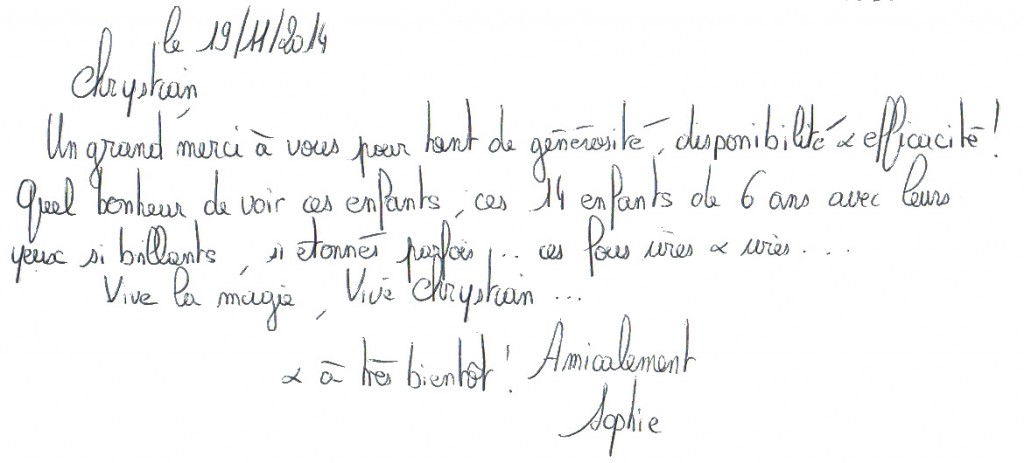 le 19/11/2014
Chrystian
Un grand merci à vous pour tant de générosité, disponibilité & efficacité !
Quel bonheur de voir ces enfants, ces 14 enfants de 6 ans avec leurs
yeux si brillants, si étonnés parfois ... ces fous rires & cris ...
Vive la magie, Vive Chrystian ...
& à très bientôt ! Amicalement
Sophie